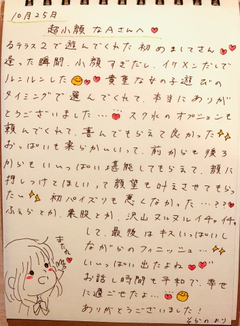 10月25日
超小顔なAさんへ
るテラス2で遊んでくれた初めましてさん
逢った瞬間、小顔すぎだし、イケメンだしで
ルンルンした 貴重な女の子遊びの
タイミングで選んでくれて、本当にありが
とうございました…… スク水のオプションも
頼んでくれて、喜んでもらえて良かった
おっぱいも柔らかいって、前からも後ろ
からもいっぱい堪能してもらえて、顔に
押しつけてほしいって願望も叶えさせてもらった
初パイズリも悪くなかった…??
ふとももとか、素股とか、沢山ヌルヌルイチャイチャ
して、最後はキスいっぱいし
ながらのフィニッシュ…
いっぱい出たよね
お話し時間も平和で、幸せ
に過ごせたよ…
ありがとうございました!